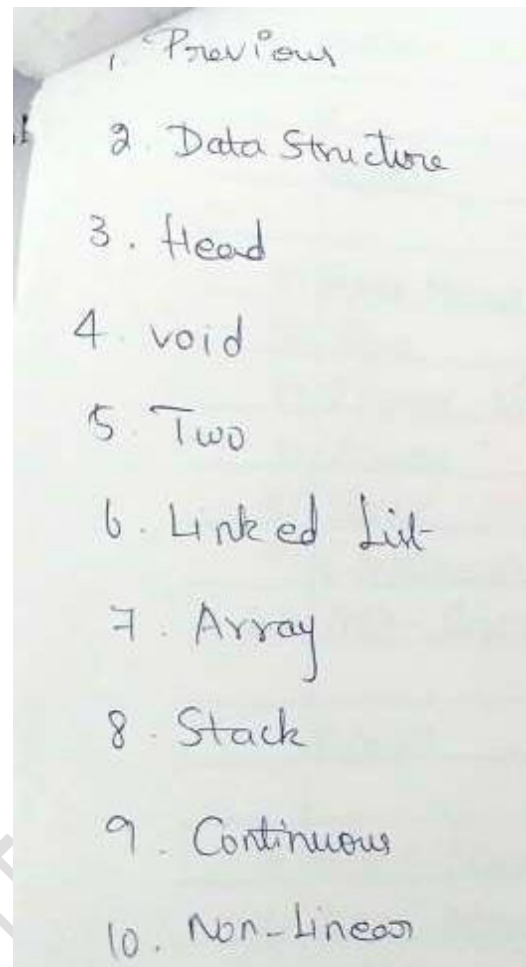 1. Previous
2. Data Structure
3. Head
4. void
5. Two
6. Linked List
7. Array
8. Stack
9. Continuous
10. Non-Linear